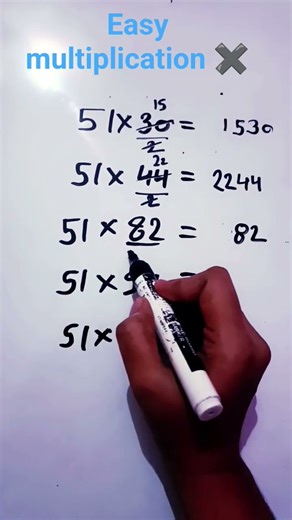 Easy
multiplication ✖
15
51 × 30 = 1530
2
22
51 × 44 = 2244
2
51 × 82 = 82
51 × =
51 ×